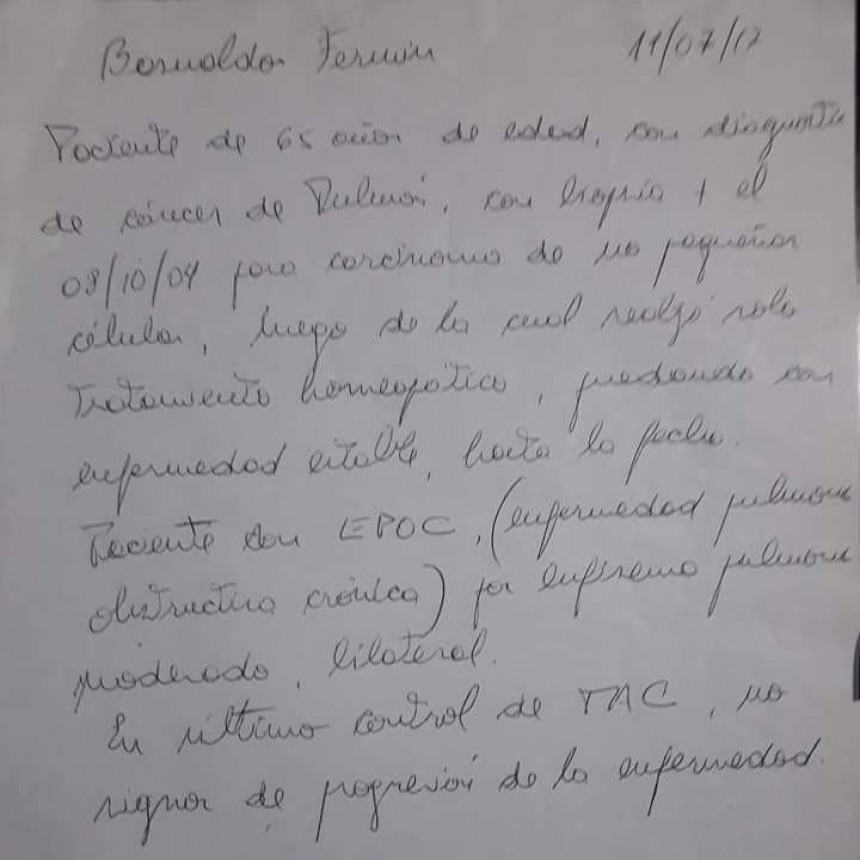 Bernaldor Fermin 11/07/17
Paciente de 65 años de edad, con diagnostico
de cáncer de Pulmón, con biopsia + el
08/10/04 para carcinoma de no pequeñas
células, luego de la cual realizó solo
tratamiento homeopático, quedando con
enfermedad estable, hasta la fecha.
Paciente con EPOC, (enfermedad pulmonar
obstructiva crónica) por enfisema pulmonar
moderado, bilateral.
En último control de TAC, no
signos de progresión de la enfermedad.